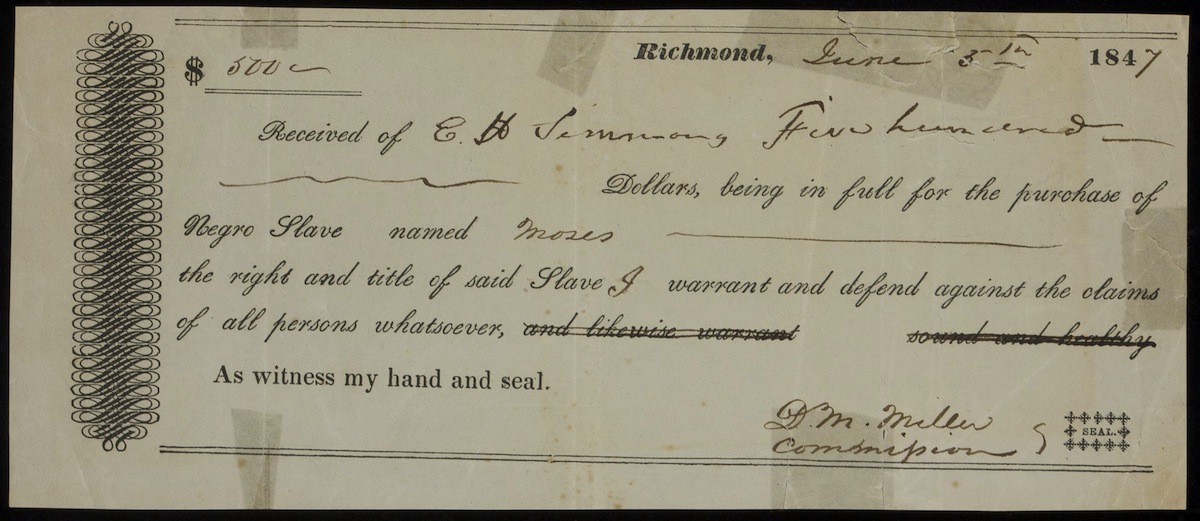 $ 500 Richmond, June 5th 1847
Received of E. H Simmons Five hundred
Dollars, being in full for the purchase of
Negro Slave named Moses
the right and title of said Slave I warrant and defend against the claims
of all persons whatsoever, and likewise warrant sound and healthy
As witness my hand and seal.
D. M. Miller
Commission
SEAL.